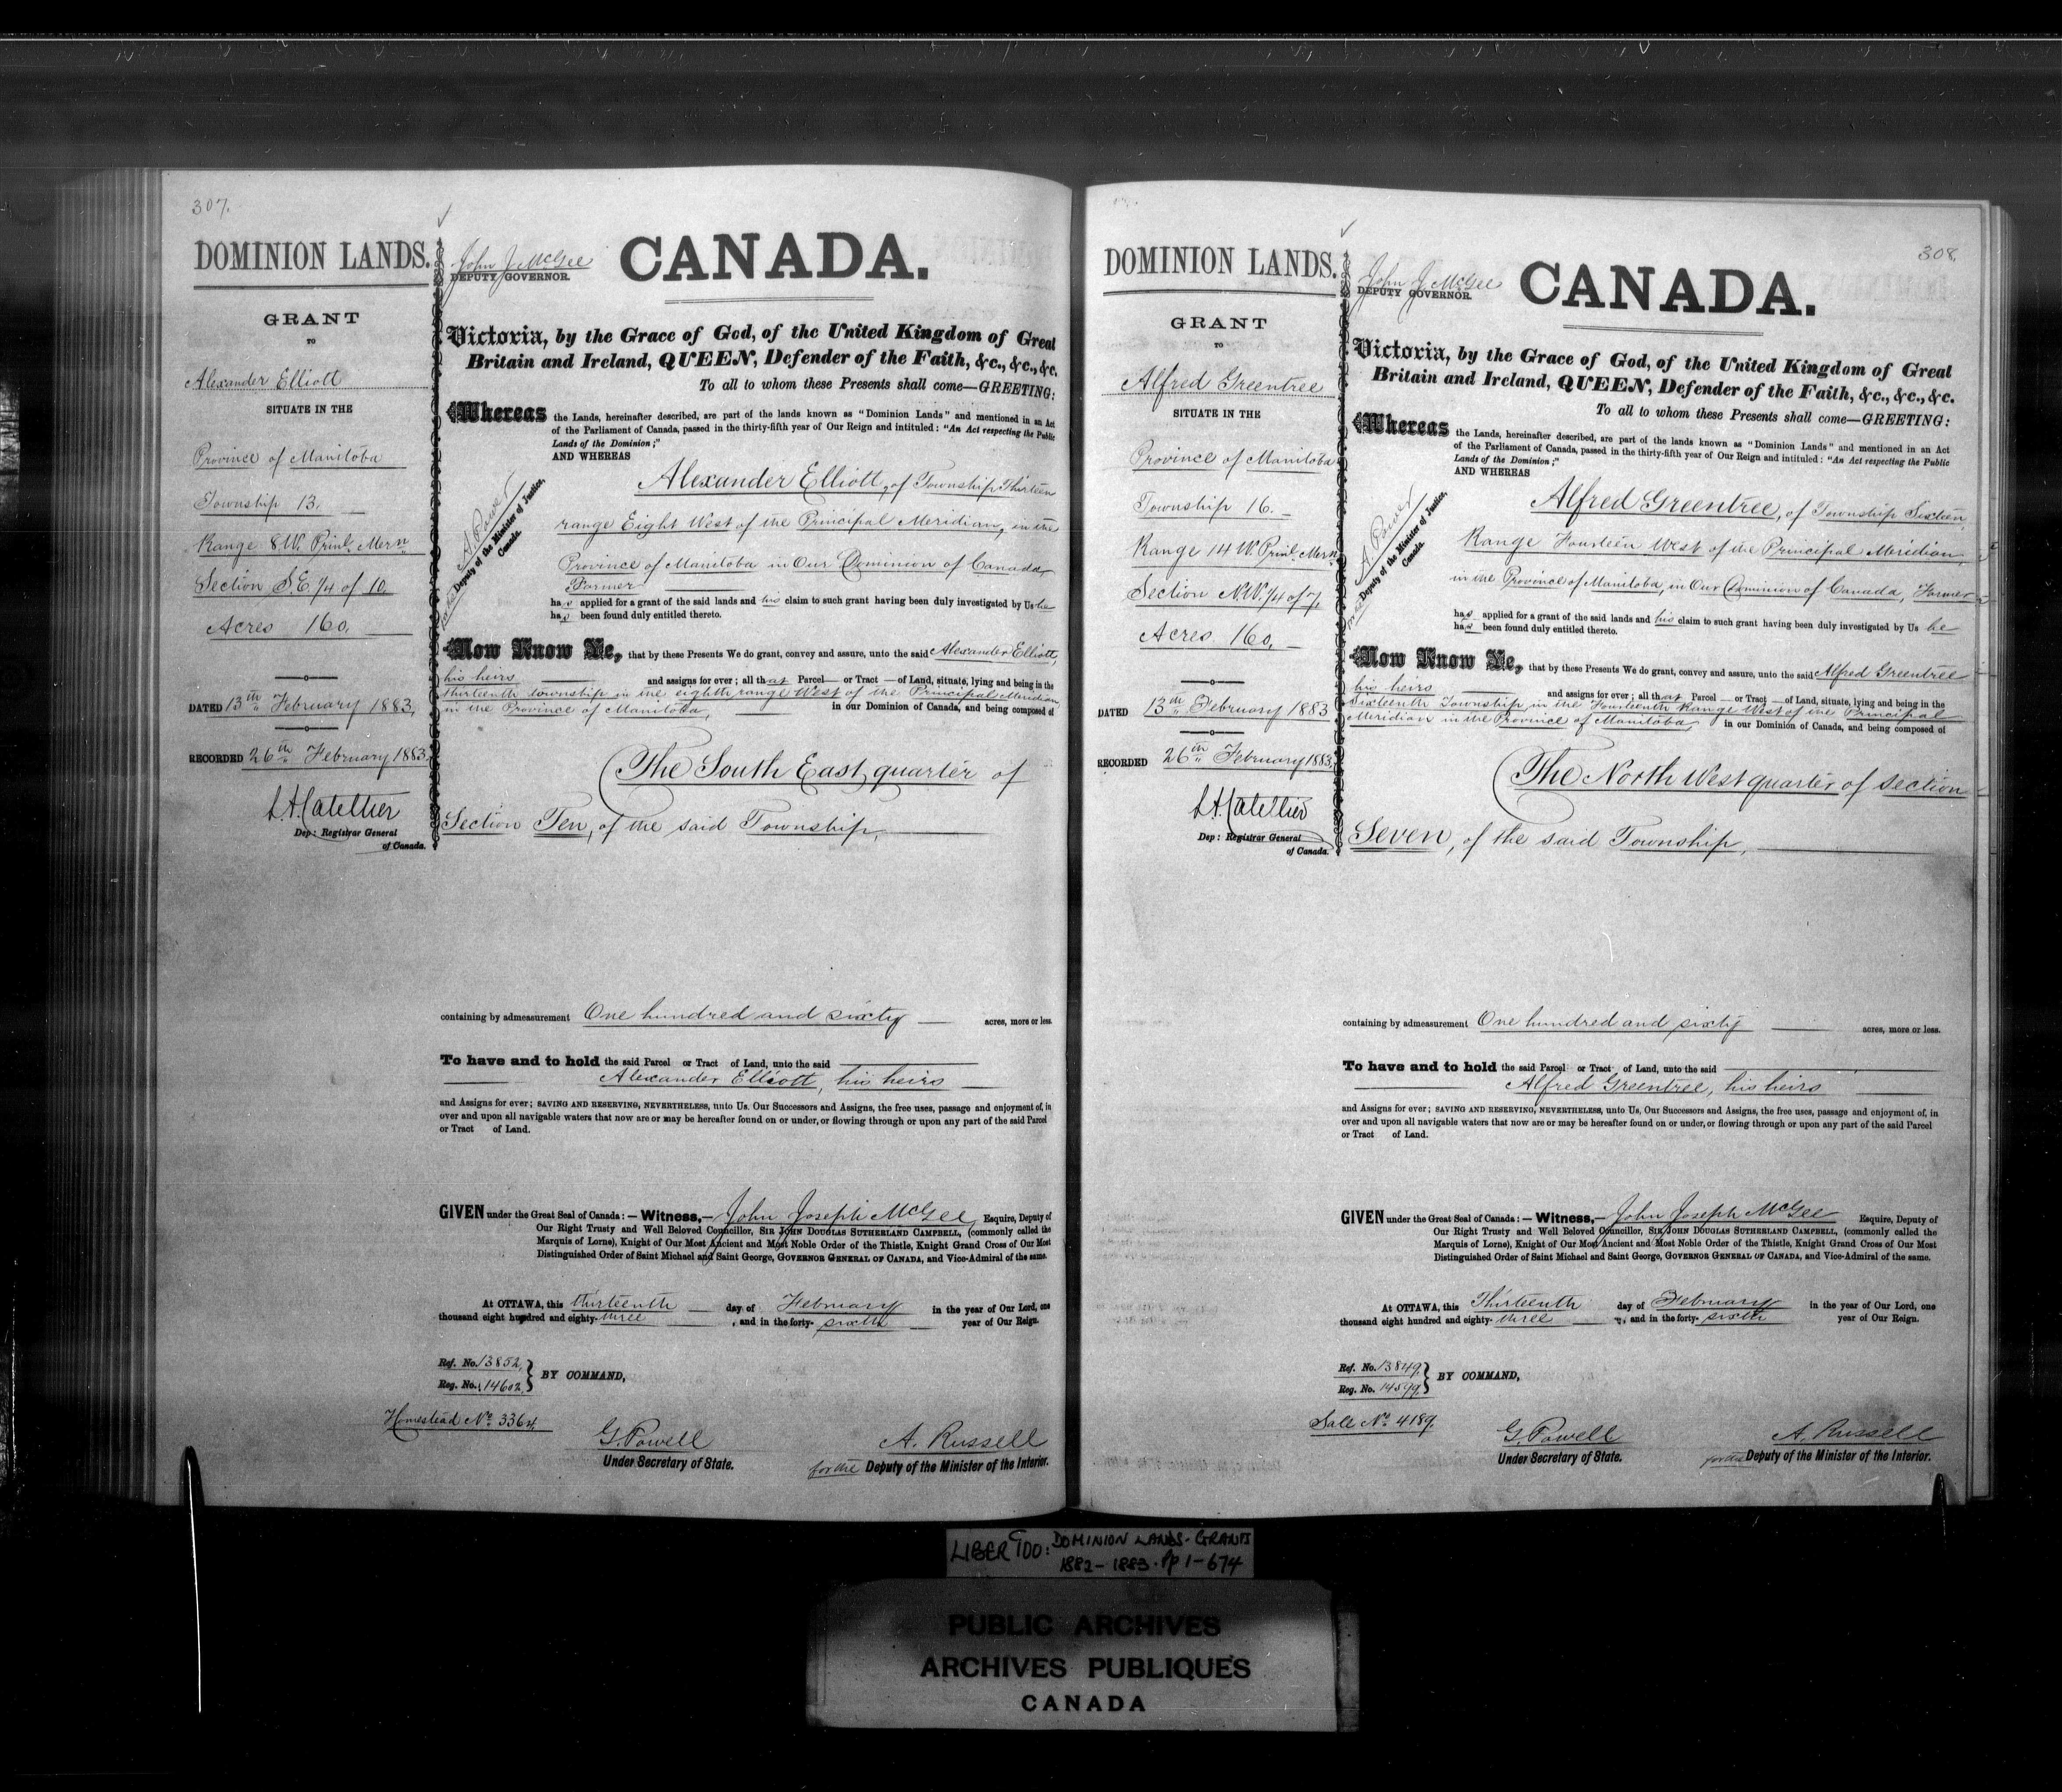 307.
DOMINION LANDS.
GRANT
TO
Alexander Elliott
SITUATE IN THE
Province of Manitoba
Township 13.
Range 8 W. Prinl. Mern
Section S.E. 1/4 of 10.
Acres 160.
DATED 13th February 1883.
RECORDED 26th February 1883.
L.A. Catellier
Dep: Registrar General
of Canada.
John J. McGee
DEPUTY GOVERNOR.
CANADA.
Victoria, by the Grace of God, of the United Kingdom of Great
Britain and Ireland, QUEEN, Defender of the Faith, &c., &c., &c.
To all to whom these Presents shall come—GREETING:
Whereas the Lands, hereinafter described, are part of the lands known as "Dominion Lands" and mentioned in an Act
of the Parliament of Canada, passed in the thirty-fifth year of Our Reign and intituled: "An Act respecting the Public
Lands of the Dominion;"
AND WHEREAS
Alexander Elliott, of Township Thirteen
range Eight West of the Principal Meridian, in the
Province of Manitoba in Our Dominion of Canada,
Farmer
A. Power
for the Deputy of the Minister of Justice,
Canada.
has applied for a grant of the said lands and his claim to such grant having been duly investigated by Us he
has been found duly entitled thereto.
Now Know Ye, that by these Presents We do grant, convey and assure, unto the said Alexander Elliott,
his heirs and assigns for ever; all that Parcel or Tract of Land, situate, lying and being in the
thirteenth township in the eighth range West of the Principal Meridian
in the Province of Manitoba, in our Dominion of Canada, and being composed of
The South East quarter of
Section Ten, of the said Township,
containing by admeasurement One hundred and sixty acres, more or less.
To have and to hold the said Parcel or Tract of Land, unto the said
Alexander Elliott, his heirs
and Assigns for ever; SAVING AND RESERVING, NEVERTHELESS, unto Us, Our Successors and Assigns, the free uses, passage and enjoyment of, in
over and upon all navigable waters that now are or may be hereafter found on or under, or flowing through or upon any part of the said Parcel
or Tract of Land.
GIVEN under the Great Seal of Canada:—Witness,—John Joseph McGee Esquire, Deputy of
Our Right Trusty and Well Beloved Councillor, SIR JOHN DOUGLAS SUTHERLAND CAMPBELL, (commonly called the
Marquis of Lorne), Knight of Our Most Ancient and Most Noble Order of the Thistle, Knight Grand Cross of Our Most
Distinguished Order of Saint Michael and Saint George, GOVERNOR GENERAL OF CANADA, and Vice-Admiral of the same.
At OTTAWA, this thirteenth day of February in the year of Our Lord, one
thousand eight hundred and eighty-three, and in the forty-sixth year of Our Reign.
Ref. No. 13852.
Reg. No. 14602.
BY COMMAND,
Homestead No. 3364.
G. Powell
Under Secretary of State.
A. Russell
for the Deputy of the Minister of the Interior.
308.
DOMINION LANDS.
GRANT
TO
Alfred Greentree
SITUATE IN THE
Province of Manitoba
Township 16.
Range 14 W. Prinl. Mern
Section N.W. 1/4 of 7.
Acres 160.
DATED 13th February 1883
RECORDED 26th February 1883.
L.A. Catellier
Dep: Registrar General
of Canada.
John J. McGee
DEPUTY GOVERNOR.
CANADA.
Victoria, by the Grace of God, of the United Kingdom of Great
Britain and Ireland, QUEEN, Defender of the Faith, &c., &c., &c.
To all to whom these Presents shall come—GREETING:
Whereas the Lands, hereinafter described, are part of the lands known as "Dominion Lands" and mentioned in an Act
of the Parliament of Canada, passed in the thirty-fifth year of Our Reign and intituled: "An Act respecting the Public
Lands of the Dominion;"
AND WHEREAS
Alfred Greentree, of Township Sixteen,
Range Fourteen West of the Principal Meridian,
in the Province of Manitoba, in Our Dominion of Canada, Farmer
A. Power
for the Deputy of the Minister of Justice,
Canada.
has applied for a grant of the said lands and his claim to such grant having been duly investigated by Us he
has been found duly entitled thereto.
Now Know Ye, that by these Presents We do grant, convey and assure, unto the said Alfred Greentree
his heirs and assigns for ever; all that Parcel or Tract of Land, situate, lying and being in the
Sixteenth Township in the Fourteenth Range West of the Principal
Meridian in the Province of Manitoba, in our Dominion of Canada, and being composed of
The North West quarter of section
Seven, of the said Township,
containing by admeasurement One hundred and sixty acres, more or less.
To have and to hold the said Parcel or Tract of Land, unto the said
Alfred Greentree, his heirs
and Assigns for ever; SAVING AND RESERVING, NEVERTHELESS, unto Us, Our Successors and Assigns, the free uses, passage and enjoyment of, in
over and upon all navigable waters that now are or may be hereafter found on or under, or flowing through or upon any part of the said Parcel
or Tract of Land.
GIVEN under the Great Seal of Canada:—Witness,—John Joseph McGee Esquire, Deputy of
Our Right Trusty and Well Beloved Councillor, SIR JOHN DOUGLAS SUTHERLAND CAMPBELL, (commonly called the
Marquis of Lorne), Knight of Our Most Ancient and Most Noble Order of the Thistle, Knight Grand Cross of Our Most
Distinguished Order of Saint Michael and Saint George, GOVERNOR GENERAL OF CANADA, and Vice-Admiral of the same.
At OTTAWA, this Thirteenth day of February in the year of Our Lord, one
thousand eight hundred and eighty-three, and in the forty-sixth year of Our Reign.
Ref. No. 13849.
Reg. No. 14599.
BY COMMAND,
Sale No. 4189.
G. Powell
Under Secretary of State.
A. Russell
for the Deputy of the Minister of the Interior.
LIBER C100: DOMINION LANDS-GRANTS
1882-1883. Pp 1-674
PUBLIC ARCHIVES
ARCHIVES PUBLIQUES
CANADA